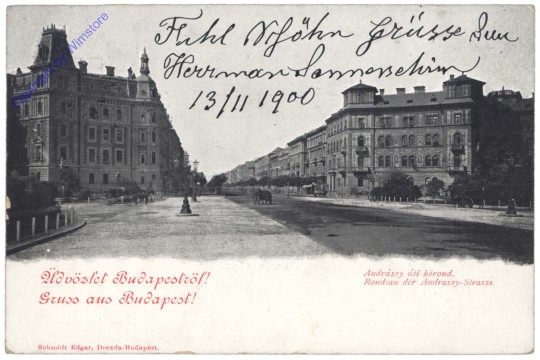 Schöhn Grüsse
Herrman
13/11 1900
Üdvözlet Budapestről!
Gruss aus Budapest!
Andrássy úti körond.
Rondeau der Andrassy-Strasse.
Schmidt Edgar, Drezda-Budapest.